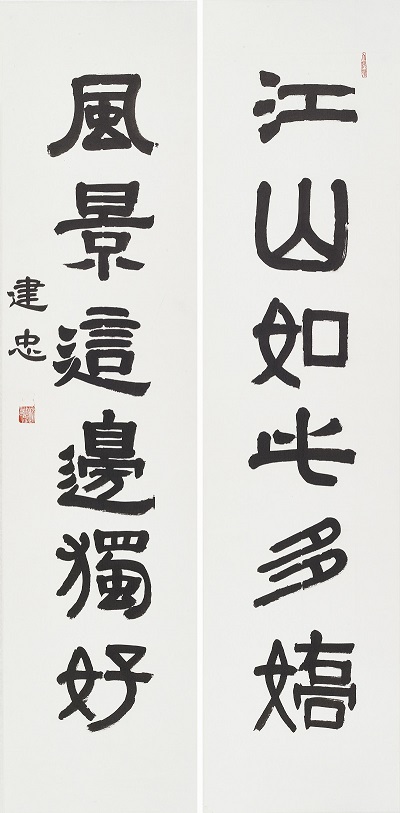 江山如此多嬌
風景這邊獨好
建忠